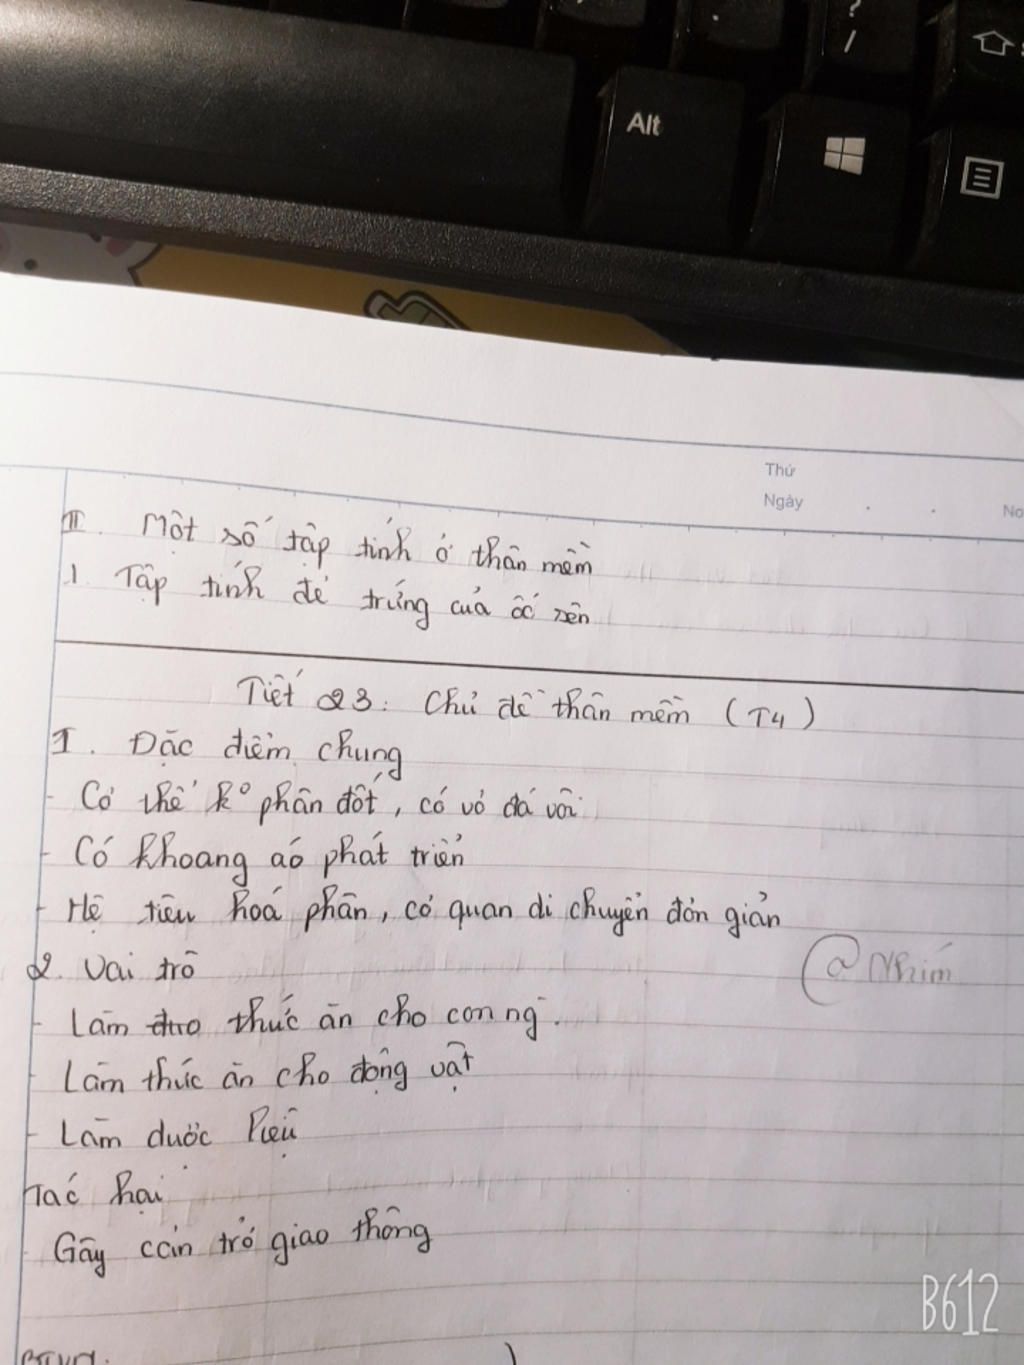 ?
/
Alt
Thứ
Ngày
No
II. Một số tập tính ở thân mềm
1. Tập tính đẻ trứng của ốc sên
Tiết 23: Chủ đề thân mềm (T4)
I. Đặc điểm chung
- Cơ thể ko phân đốt, có vỏ đá vôi
- Có khoang áo phát triển
- Hệ tiêu hoá phân, cơ quan di chuyển đơn giản
2. Vai trò
@Nhím
- Làm thức ăn cho con ng`.
- Làm thức ăn cho động vật
- Làm dược liệu
Tác hại
- Gây cản trở giao thông
B612